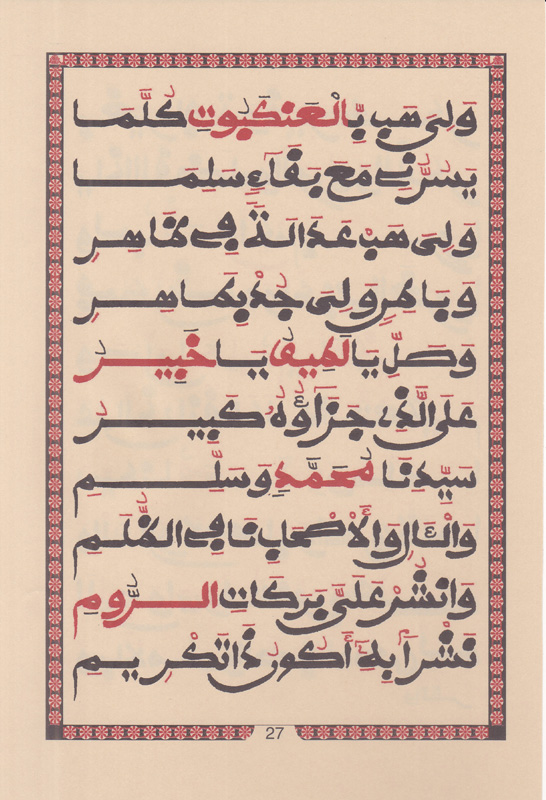 وَلِيَ هَبْ بِالْعَنكَبُوتِ كُلَّمَا
يَسُرُّنِي مَعَ بَقَآءٍ سَلِمَا
وَلِيَ هَبْ عَدَالَةً فِي ظَاهِرِ
وَبَاطِنٍ وَلِيَ جُدْ بِطَاهِرِ
وَصَلِّ يَا لَطِيفُ يَا خَبِيرُ
عَلَى الَّذِي جَزَآؤُهُ كَبِيرُ
سَيِّدِنَا مُحَمَّدٍ وَسَلِّمِ
وَالْآلِ وَالْأَصْحَابِ نَافِي الظُّلَمِ
وَانْشُرْ عَلَيَّ بَرَكَاتِ الرُّومِ
نَشْراً بِهِ أَكُونُ ذَا تَكْرِيمِ
27